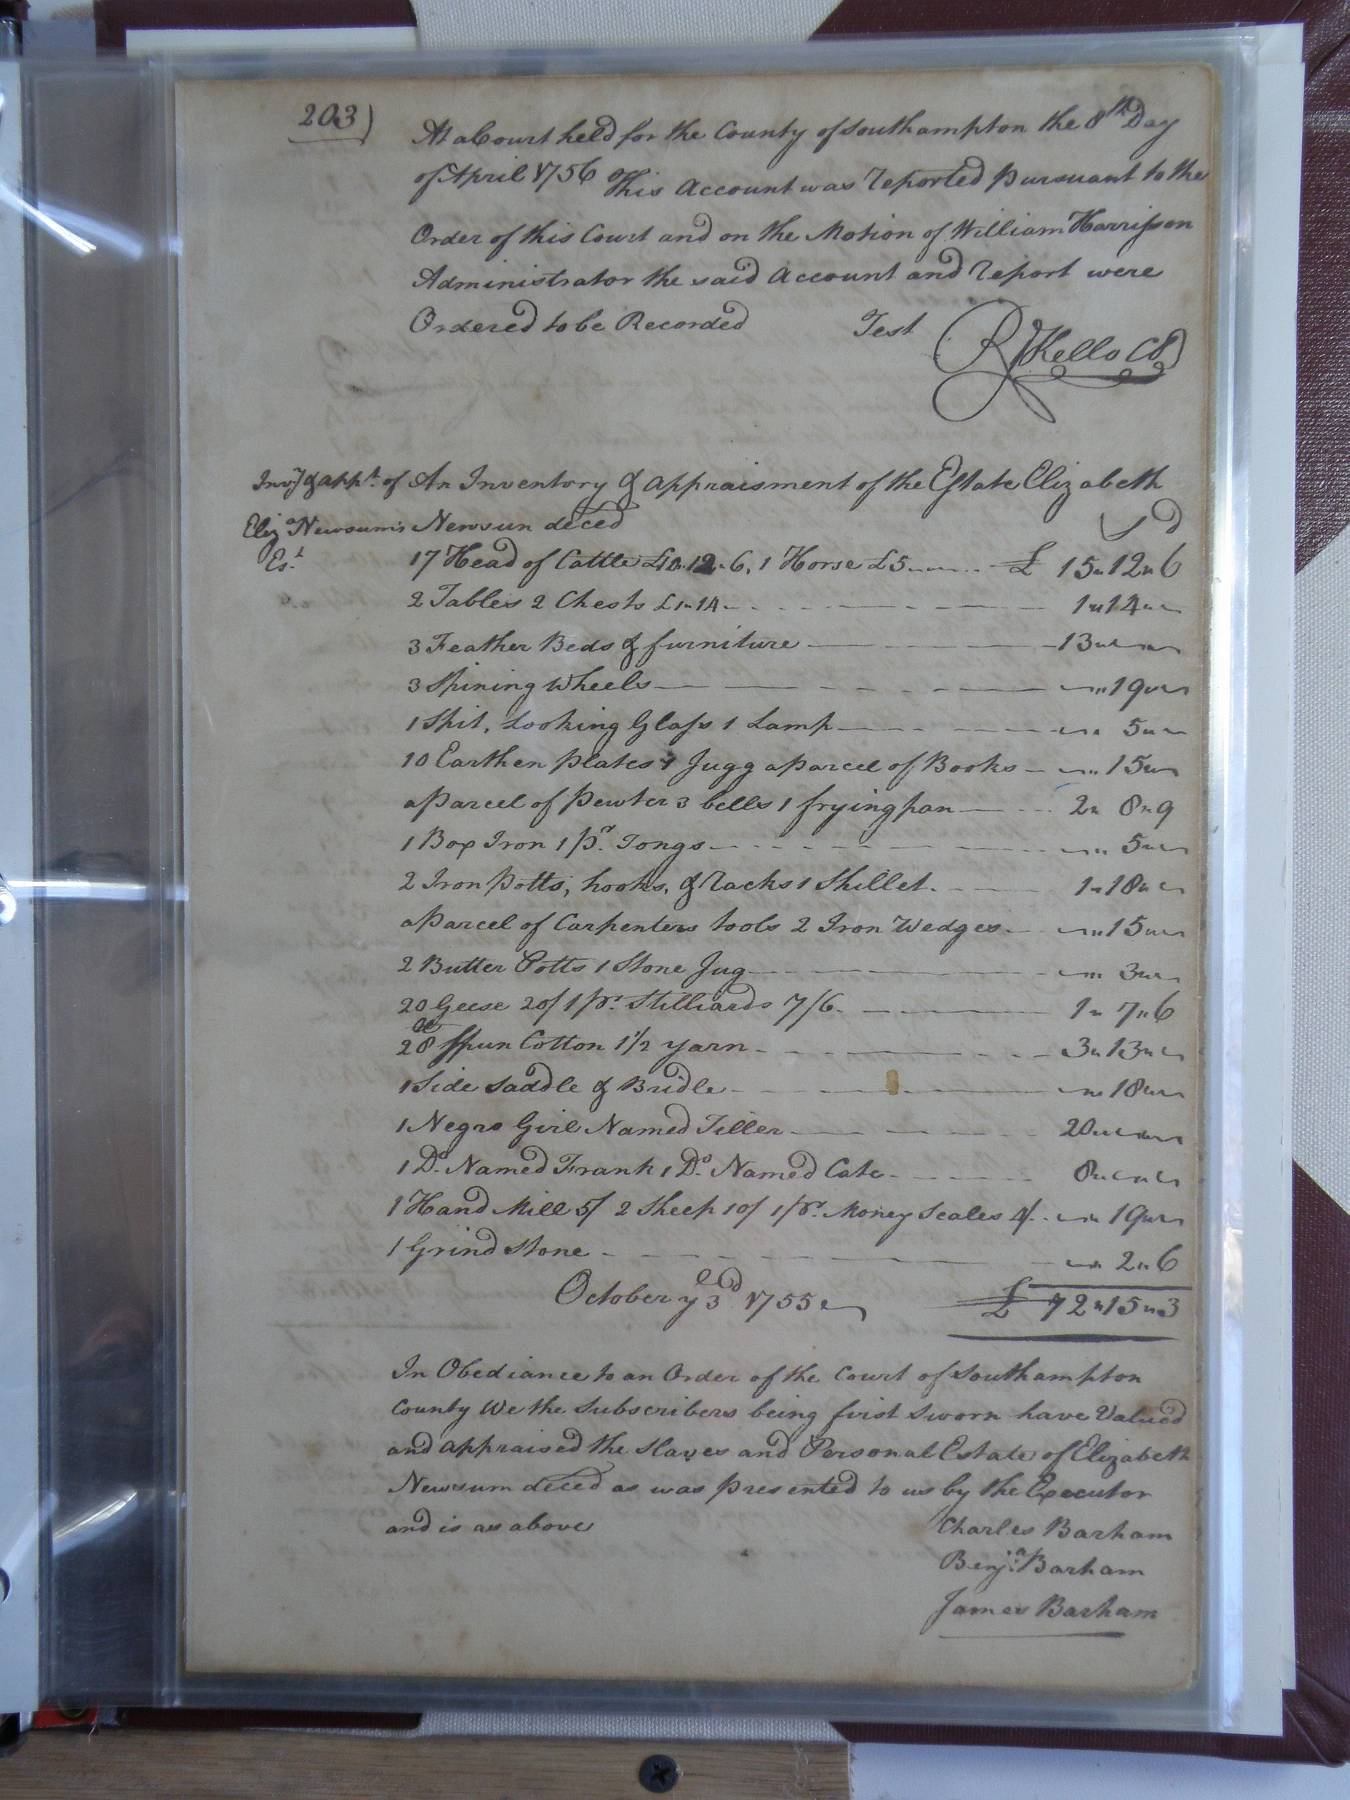 203)
At a Court held for the County of Southampton the 8th Day
of April 1756 This Account was reported pursuant to the
Order of this Court and on the Motion of William Harrisson
Administrator the said Account and report were
Ordered to be Recorded Test RKello CC
Inv.y & app.t of An Inventory & Appraisment of the Estate Elizabeth
Eliz.a Newsum's Newsun deced £ S D
Es.t 17 Head of Cattle £10.12.6, 1 Horse £5 £ 15"12"6
2 Tables 2 Chests £1"14 1"14"
3 Feather Beds & furniture 13"
3 Spining Wheels "19"
1 Spit, Looking Glass 1 Lamp " 5"
10 Earthen plates 1 Jugg a parcel of Books "15"
a parcel of Pewter 3 bells 1 frying pan 2" 8"9
1 Box Iron 1 p.r Tongs " 5"
2 Iron Potts, hooks, & racks 1 Skillet 1"18"
a parcel of Carpenters tools 2 Iron Wedges "15"
2 Butter Potts 1 Stone Jug " 3"
20 Geese 20/ 1 p.r Stilliards 7/6 1" 7"6
28 Spun Cotton 1 1/2 yarn 3"13"
1 Side Saddle & Bridle "18"
1 Negro Girl Named Tiller 20"
1 D.o Named Frank 1 D.o Named Cate 8"
1 Hand Mill 5/ 2 Sheep 10/ 1 p.r Money Scales 4/ "19"
1 Grind Stone " 2"6
October ye 3d 1755 £ 72"15"3
In Obediance to an Order of the Court of Southampton
County We the Subscribers being first Sworn have Valued
and appraised the Slaves and Personal Estate of Elizabeth
Newsum deced as was presented to us by the Executor
and is as above Charles Barham
Benj.a Barham
James Barham